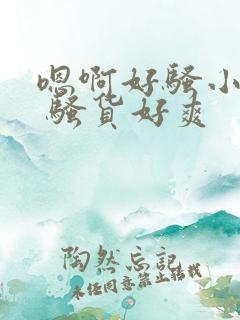 嗯啊好骚小
骚货好爽
陶然忘记
未经同意禁止转载